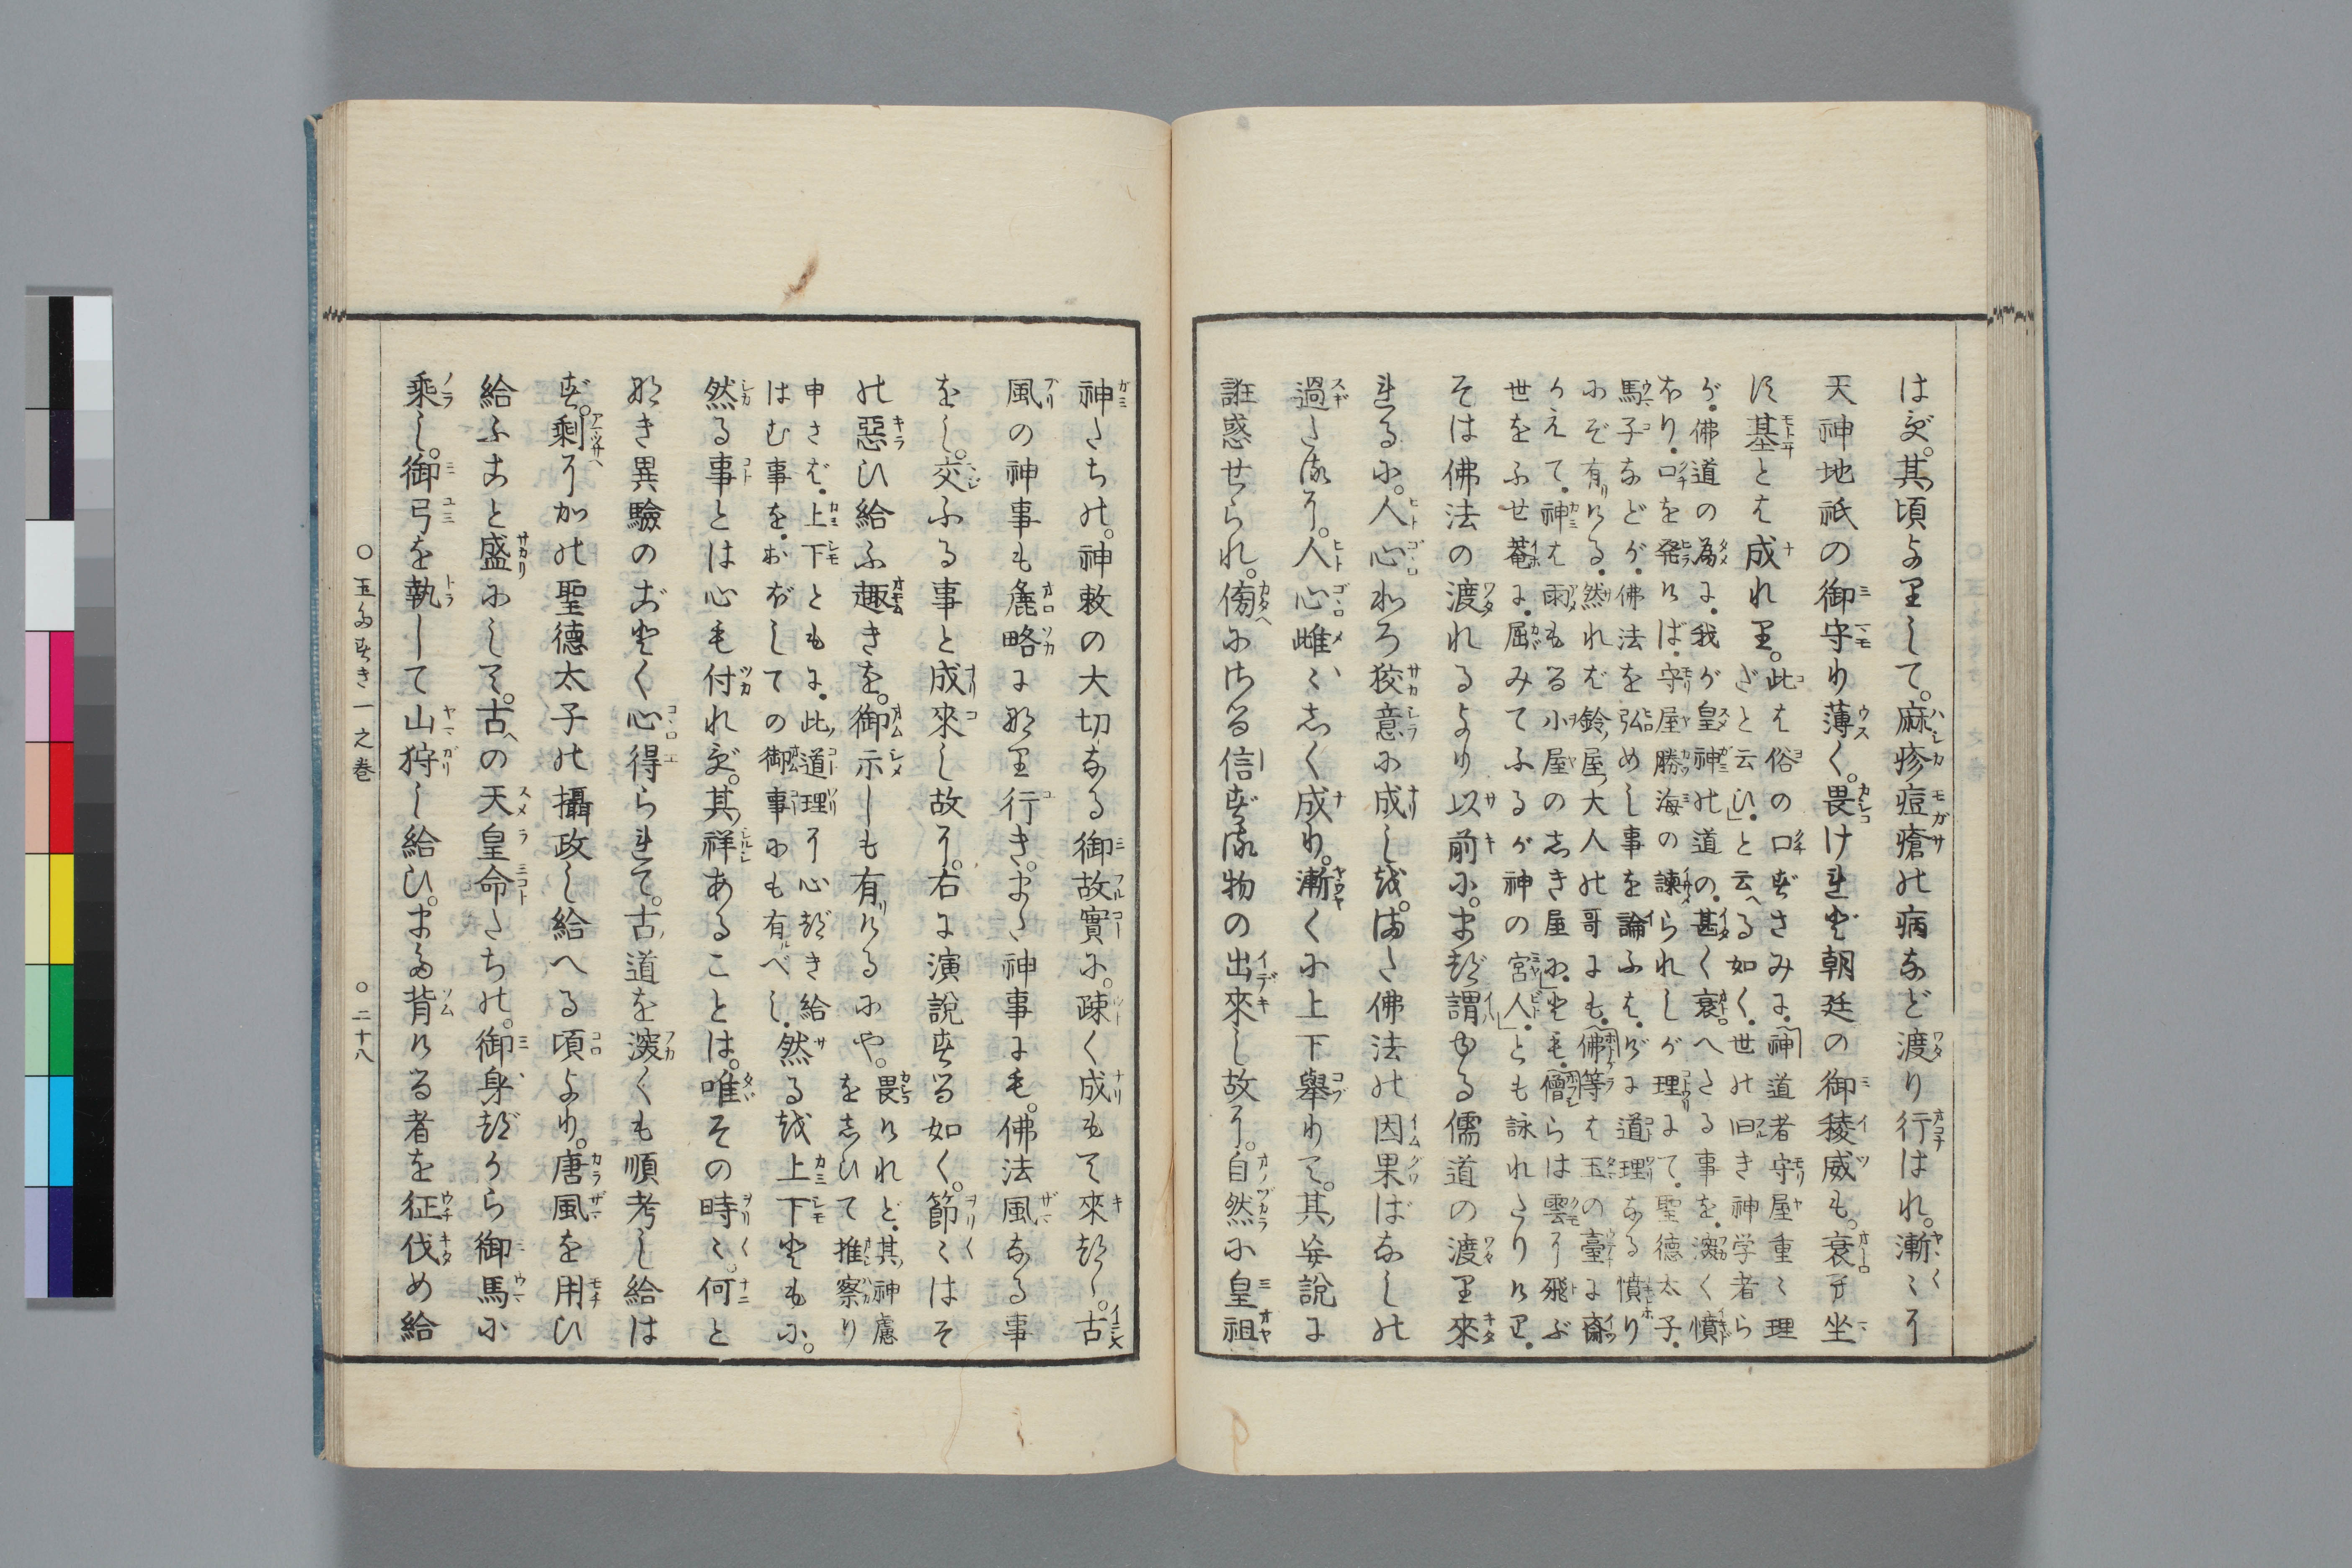 はず。其頃よりして。麻疹痘瘡の病など渡り行はれ。漸々に
天神地祇の御守り薄く。畏けれど朝廷の御稜威も。衰に坐
す基とは成れり。此は俗の口ずさみに。神道者守屋重々理
ざと云ひ。と云へる如く。世の旧き神学者ら
が。佛道の為に。我が皇神の道の。甚く衰へたる事を。深く憤
をり。口を発けば。守屋勝海の諫られしが理にて。聖徳太子。
馬子などが。佛法を弘めし事を論ふは。実に道理なる憤り
にぞ有ける。然れば鈴屋大人の哥にも。佛等は玉の臺に齋
かえて。神は雨もる小屋のしき屋に。とも。僧らは雲に飛ぶ
世をふせ菴に。屈みてふるが神の宮人。とも詠れたりけり。
そは佛法の渡れるより以前に。まづ謂ゆる儒道の渡り來
れるに。人心やゝ狡意に成しを。また佛法の因果ばなしの
過たるに。人心雌々しく成り。漸くに上下擧りて。其妄説に
誑惑せられ。傍にける信ずる物の出來し故に。自然に皇祖
神たちの。神敕の大切なる御故實に。疎く成もて來つゝ。古
風の神事も麁略になり行き。また神事にも。佛法風なる事
をし。交ふる事と成來し故に。右に演説する如く。節々はそ
の惡ひ給ふ趣きを。御示しも有けるにや。畏けれど。其神慮をしひて推察り
申さば。上下ともに。此道理に心づき給はむ事を。おぼしての御事にも有べし。然るを上下ともに。
然る事とは心も付れず。其祥あることは。唯その時々。何と
なき異驗のごとく心得られて。古道を深くも順考し給は
ず。剰にかの聖德太子の攝政し給へる頃より。唐風を用ひ
給ふこと盛にして。古の天皇命たちの。御身づから御馬に
乘し。御弓を執して山狩し給ひ。また背ける者を征伐め給
○玉たすき一之巻 ○二十八